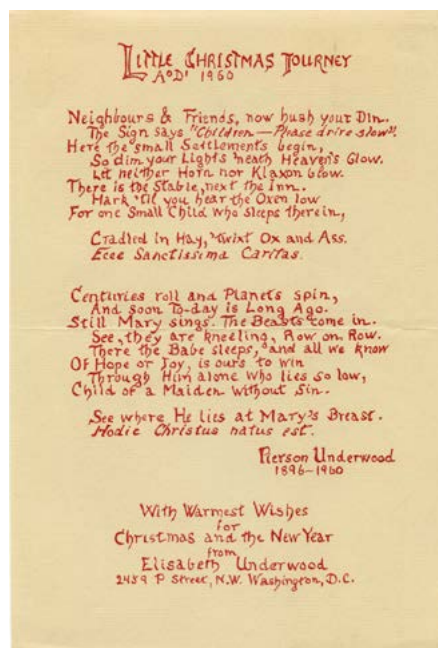 LITTLE CHRISTMAS JOURNEY
A.D. 1960
Neighbours & Friends, now hush your Din.
The Sign says "Children—Please drive slow".
Here the small Settlements begin,
So dim your Lights 'neath Heaven's Glow.
Let neither Horn nor Klaxon blow.
There is the Stable, next the Inn.
Hark 'til you hear the Oxen low
For one Small Child who sleeps therein,
Cradled in Hay, 'twixt Ox and Ass.
Ecce Sanctissima Caritas.
Centuries roll and Planets spin,
And soon To-day is Long Ago.
Still Mary sings. The Beasts come in.
See, they are kneeling, Row on Row.
There the Babe sleeps, and all we know
Of Hope or Joy, is ours to win
Through Him alone who lies so low,
Child of a Maiden without Sin.
See where He lies at Mary's Breast.
Hodie Christus natus est.
Pierson Underwood
1896-1960
With Warmest Wishes
for
Christmas and the New Year
from
Elisabeth Underwood
2459 P Street, N.W. Washington, D.C.